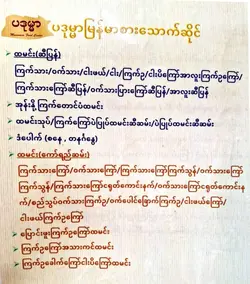 ပဒုမ္မာ
ပဒုမ္မာမြန်မာစားသောက်ဆိုင်
ထမင်း(ဆီပြန်)
ကြက်သား/ဝက်သား/ငါးဖယ်/ငါး/ကြက်ဥ/ငါးပိကြော်အာလူးကြက်ဥကြော်/
ကြက်သားကြော်ဆီပြန်/ဝက်သားပြားကြော်ဆီပြန်/အာလူးဆီပြန်
အုန်းနို့ ကြက်တောင်ပံထမင်း
ထမင်းသုပ်/ကြက်ကြော်ပဲပြုပ်ထမင်းဆီဆမ်း/ပဲပြုပ်ထမင်းဆီဆမ်း
ဒံပေါက် (စနေ , တနင်္ဂနွေ)
ထမင်း(ကော်ရည်ဆမ်း)
ကြက်သားကြော်/ဝက်သားကြော်/ကြက်သားကြော်ကြက်သွန်/ဝက်သားကြော်
ကြက်သွန်/ကြက်သားကြော်ငရုတ်ကောင်းနက်/ဝက်သားကြော်ငရုတ်ကောင်းန
က်/စည်သွပ်ဝက်သားကြက်ဥ/ဝက်ပေါင်ခြောက်ကြက်ဥ/ငါးဖယ်ကြော်/
ငါးဖယ်ကြက်ဥကြော်
ပြောင်းဖူးကြက်ဥကြော်ထမင်း
ကြက်ဥကြော်အသားကင်ထမင်း
ကြက်ဥခေါက်ကြော်ငါးပိကြော်ထမင်း